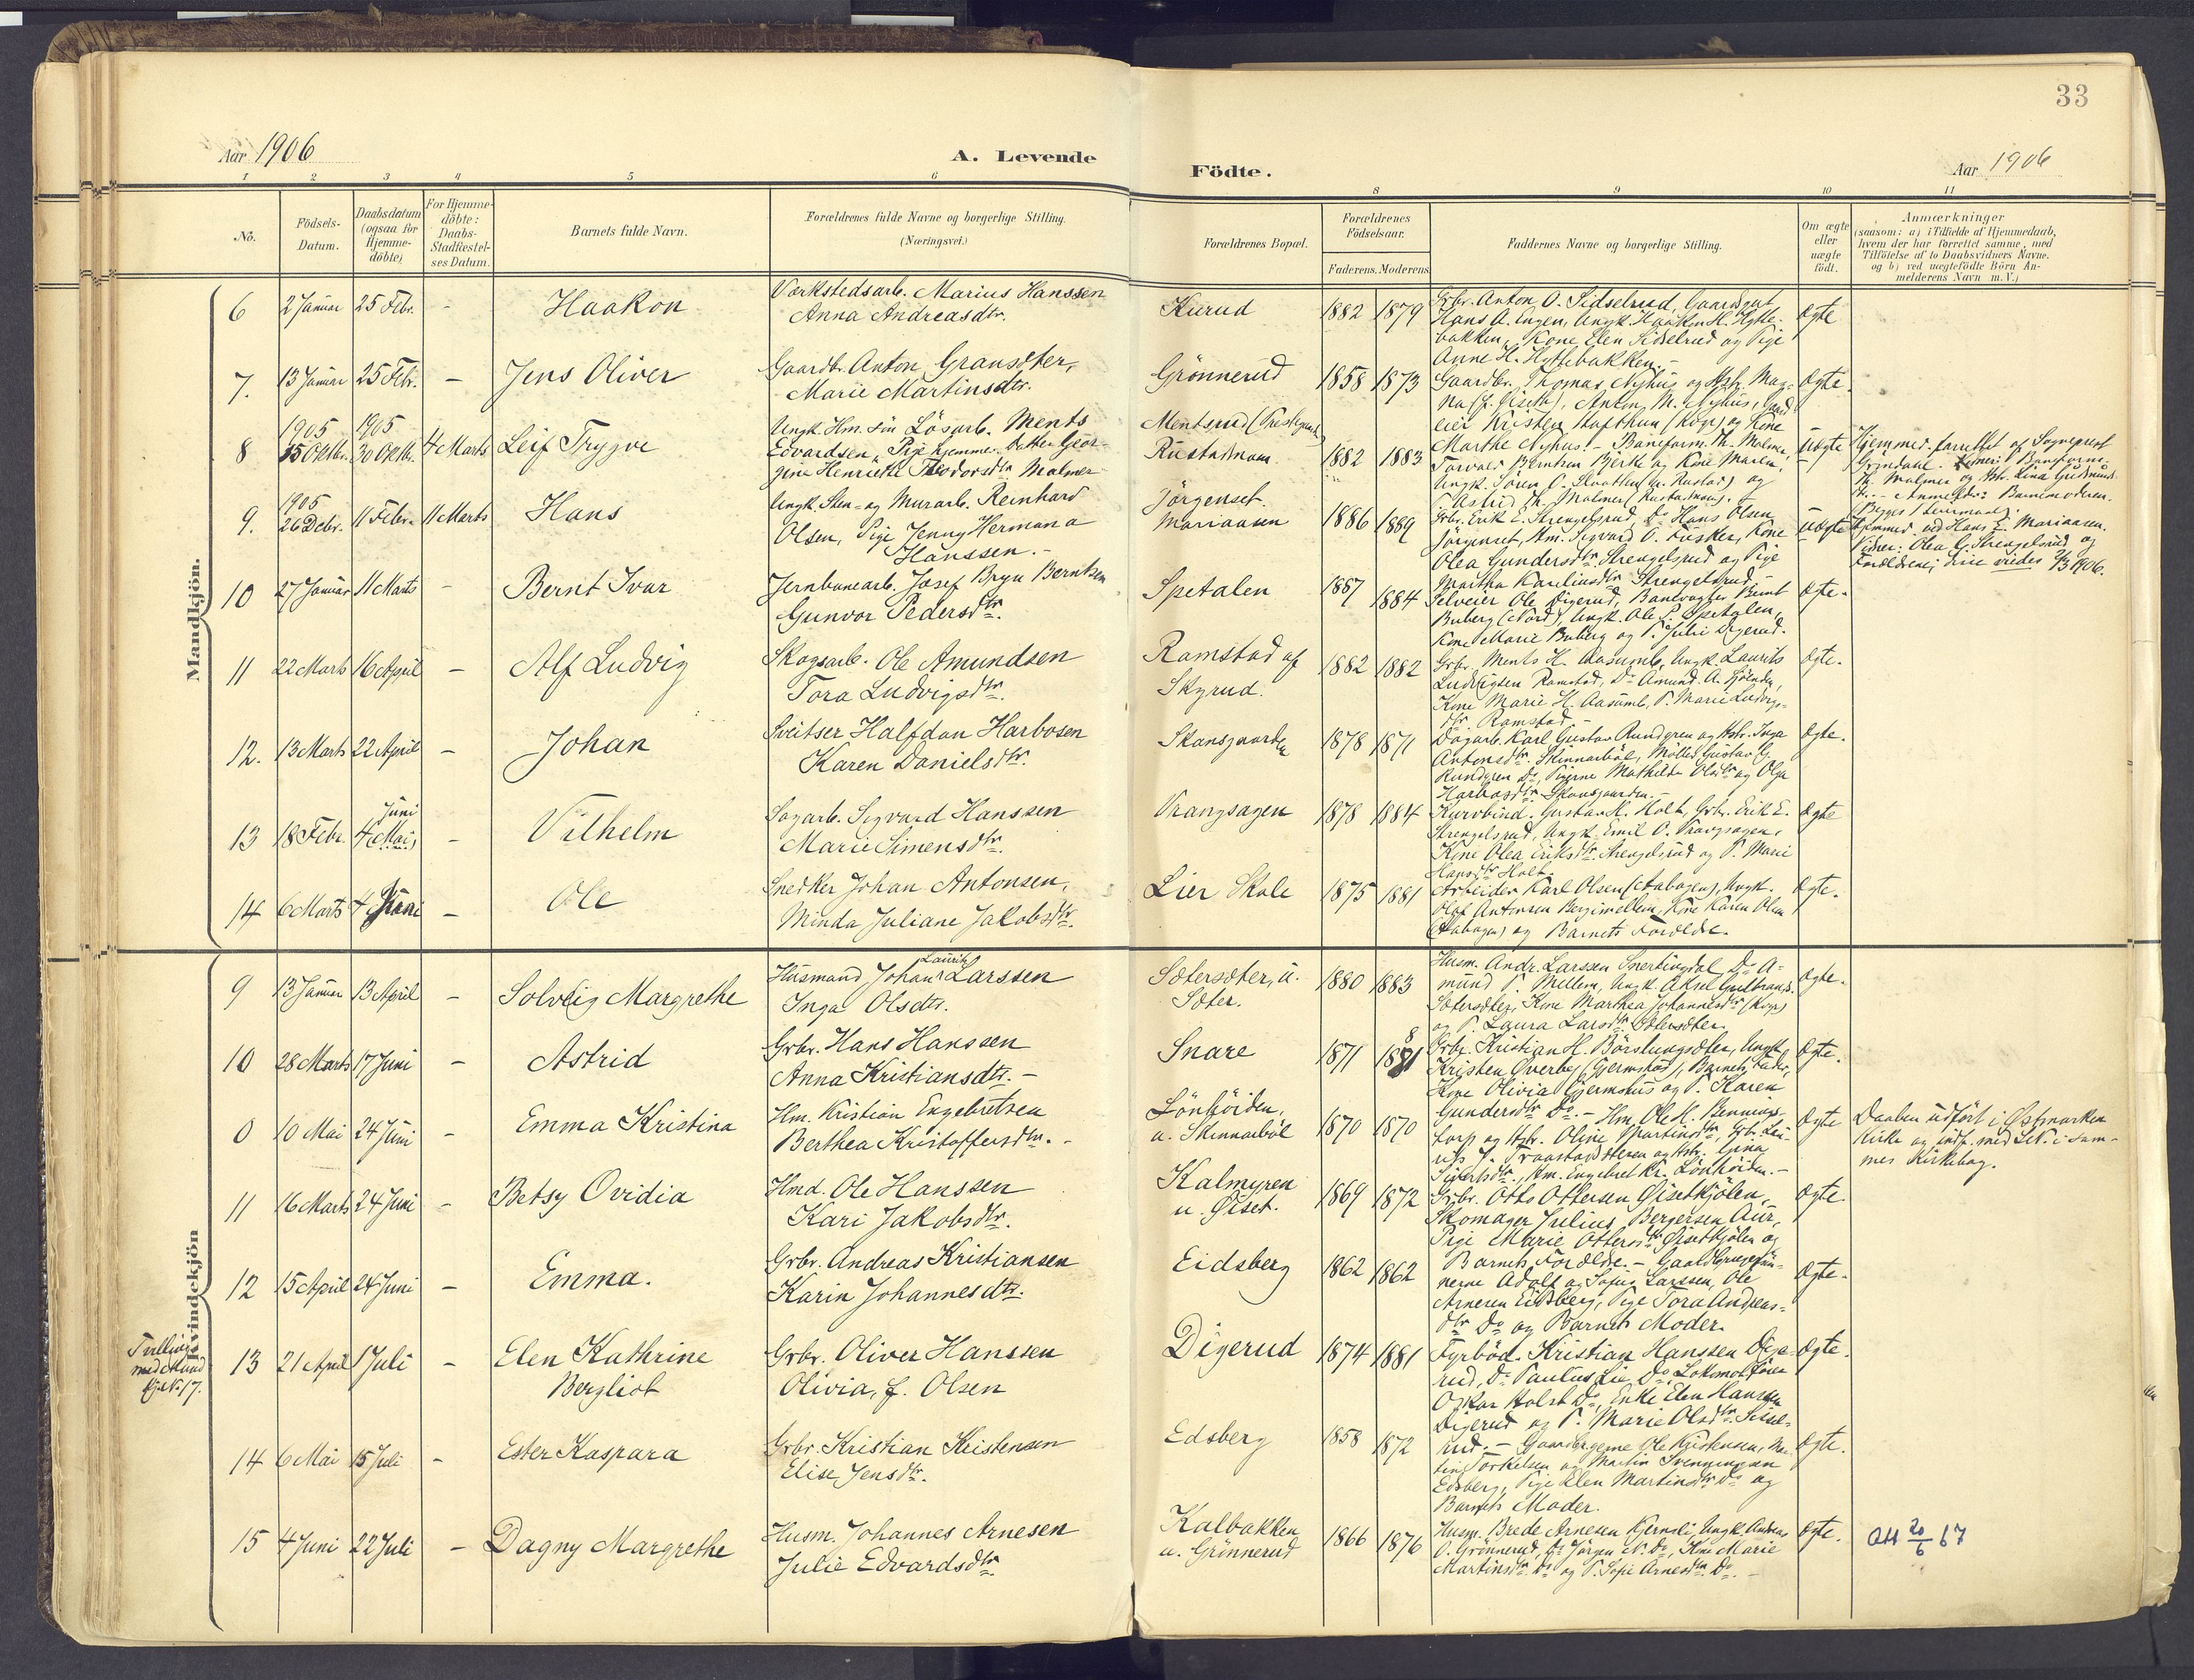 33
Aar 1906
A. Levende
Födte.
Aar 1906
1 2 3 4 5 6 8 9 10 11
Nö.
Födsels-
Datum.
Daabsdatum
(ogsaa for
Hjemme-
döbte)
For Hjemme-
döbte:
Daabs-
Stadfæstel-
ses Datum.
Barnets fulde Navn.
Forældrenes fulde Navne og borgerlige Stilling.
(Næringsvei.)
Forældrenes Bopæl.
Forældrenes
Födselsaar.
Faderens. Moderens
Faddernes Navne og borgerlige Stilling.
Om ægte
eller
uægte
födt.
Anmærkninger
(saasom: a) i Tilfælde af Hjemmedaab,
hvem der har forrettet samme, med
Tilföielse af to Daabsvidners Navne.
og b) ved uægtefödte Börn An-
melderens Navn m.V.)
Mandkjön.
6 2 Januar 25 Febr. - Haakon
Værkstedsarb. Marius Hanssen
Anna Andreasdtr.
Kurud 1882 1879
Grbr. Anton O. Sidselrud, Gaardgut
Hans A. Engen, Ungk. Haakon H. Hytte-
bakken, Kone Elen Sidselrud og Pige
Anne H. Hyttebakken.-
Ægte
7. 13 Januar 25 Febr. - Jens Oliver
Gaardbr. Anton Gransæter,
Marie Martinsdtr.
Grönnerud 1858 1873
Gaardbr. Thomas Nyhus og Hstr. Mag-
na (f. Giseth), Anton M. Nyhus, Gaard-
eier Kristen Hafthun (Kogs) og Kone
Marthe Nyhus.-
Ægte.
8 1905 15 Oktbr. 1905 30 Oktbr. 4 Marts Leif Trygve
Ungk. Hm. sön Lösarb. Ments
Edvardsen, Pige hjemme. Datter Geor-
gine Henriette Theodorsdtr. Malmer
Mentsrud (Prestegaard)
Rustadmoen 1882 1883
Baneform. Th. Malmer,
Torvald Berntsen Bjerke og Kone Maren,
Ungk. Sören O. Skratten (u. Rustad) og
P. Astrid Th. Malmer (Rustadmoen). -
Uægte
Hjemmed. forrettet af Sogneprest
Grindahl. Vidner: Baneform.
Th. Malmer og Hstr. Lina Gudmunds-
dtr. - Anmelder: Barnemoderen.
Begges 1 Leiermaal.
9. 1905 26 Debr. 11 Febr. 11 Marts Hans
Ungk. Sten- og Murarb. Reinhard
Olsen, Pige Jenny Hermana
Hanssen.-
Jörgenset.
Mariaasen 1886 1889
Grbr. Erik E. Strengelsrud, Do Hans Olsen
Jörgenset, Hm. Sigvard O. Fusker, Kone
Olea Gundersdtr. Strengelsrud og Pige
Martha Karelinsdtr. Strengelsrud.-
Uægte
Hjemmed. ved Hans E. Mariaasen.
Vidner: Olea G. Strengelsrud og
Forældrene; disse viedes 11/3 1906.
10 27 Januar 11 Marts - Bernt Ivar
Jernbanearb. Josef Bryn Berntsen
Gunvor Pedersdtr.
Spetalen 1887 1884
Selveier Ole Digerud, Banevogter Bernt
Buberg (Nord), Ungk. Ole P. Spetalen,
Kone Marie Buberg og P. Julie Digerud.
Ægte.
11 22 Marts 16 April - Alf Ludvig
Skogsarb. Ole Amundsen
Tora Ludvigsdtr.
Ramstad af
Skyrud. 1882 1882
Grbr. Ments H. Aasumb, Ungk. Laurits
Ludvigsen Ramstad, Do Amund A. Fjösmden,
Kone Marie H. Aasumb, P. Marie Ludvigs-
dtr. Ramstad.-
Ægte.
12. 13 Marts 22 April - Johan
Sveitser Halfdan Harbosen
Karen Danielsdtr.
Skansgaarden 1878 1871
Dagarb. Karl Gustav Rundgren og Hstr. Inga
Antonsdtr. Skinnarböl, Möller Gustav G.
Rundgren Do, Pigerne Mathilde Olsdtr. og Olga
Harbosdtr. Skansgaarden.-
Ægte.
13 18 Febr. 4 Mai, Juni - Vilhelm
Sagarb. Sigvard Hanssen
Marie Simensdtr.
Vrangsagen 1878 1884
Kurvbind. Gustav H. Holt, Grbr. Erik E.
Strengelsrud, Ungk. Emil O. Vrangsagen,
Kone Olea Eriksdtr. Strengelsrud og P. Marie
Hansdtr. Holt.
Ægte
14 6 Marts 4 Juni - Ole
Snedker Johan Antonsen,
Minda Juliane Jakobsdtr.
Lier Skole 1875 1881
Arbeider Karl Olsen (Aabogen), Ungk.
Olaf Antonsen Bergimellem, Kone Karen Olsen
(Aabogen) og Barnets Forældre.
Ægte.
Kvindekjön
9 13 Januar 13 April - Solveig Margrethe
Husmand Johan Lauritz Larssen
Inga Olsdtr.
Sætersæter, u.
Sæter. 1880 1883
Husm. Andr. Larssen Snertingdal, Do A-
mund P. Mellem, Ungk. Aksel Gulbrands.
Sætersæter, Kone Marthea Johannesdtr. (Kogs)
og P. Laura Larsdtr. Sætersæter.
Ægte.
10 28 Marts 17 Juni - Astrid
Grbr. Hans Hanssen
Anna Kristiansdtr. -
Snare 1871 1881 8
Grbr. Kristian H. Börslungsæter, Ungk.
Kristen Överby (Gjermshus), Barnets Fader,
Kone Olivia Gjermshus og P. Karen
Gundersdtr. Do.-
Ægte.
0 10 Mai 24 Juni - Emma Kristina
Hm. Kristian Engebretsen
Berthea Kristoffersdtr. -
Lönhöiden,
u. Skinnarböl 1870 1870
Hm. Ole K. Bennings-
torp og Hstr. Oline Martinsdtr., Grbr. Lau-
rits J. Traastadsteren og Hstr. Gina
Sivertsdtr., Hm. Engebret Kr. Lönhöiden.-
Ægte
Daaben udfört i Østmarken
Kirke og indf. med L.N. i sam-
mes Kirkebog.
11 16 Marts 24 Juni - Betsy Ovidia
Hmd. Ole Hanssen
Kari Jakobsdtr.
Kalmyren
u. Øiset. 1869 1872
Grbr. Otto Ottersen Øisetkjölen,
Skomager Julius Bergersen Aur,
Pige Marie Ottersdtr. Øisetkjölen og
Barnets Forældre.-
Ægte.
12 15 April 24 Juni - Emma.
Grbr. Andreas Kristiansen
Karin Johannesdtr.
Eidsberg 1862 1862
Gaardbrugersön-
nerne Adolf og Sofus Larssen, Ole
Arnesen Eidsberg, Pige Tora Andreas-
dtr. Do og Barnets Moder.
Ægte.
Tvilling
med Mand-
kj. N. 17.
13 21 April 1 Juli - Elen Kathrine
Bergliot
Grbr. Oliver Hanssen
Olivia, f. Olsen
Digerud 1874 1881
Fyrböd. Kristian Hanssen Dige-
rud, Do Paulus Lie Do, Lokomotförer
Oskar Holst Do, Enke Elen Hanssen
Digerud og P. Marie Olsdtr. Sissel-
rud.-
Ægte.
14 6 Mai 15 Juli - Ester Kaspara
Grbr. Kristian Kristensen
Elise Jensdtr.
Edsberg 1858 1872
Gaardbrgerne Ole Kristensen, Mar-
tin Torkelsen og Martin Svenningsen
Edsberg, Pige Elen Martinsdtr. Do og
Barnets Moder.
Ægte.
15 4 Juni 22 Juli - Dagny Margrethe
Husm. Johannes Arnesen
Julie Edvardsdtr.
Kalbakken
u. Grönnerud 1866 1876
Husm. Brede Arnesen Kjernsli, Ungk. Andreas
O. Grönnerud, Do Jörgen N. Do, Kone Marie
Martinsdtr. Do og P. Sofie Arnesdtr. Do.-
Ægte.
OH 20/6 67